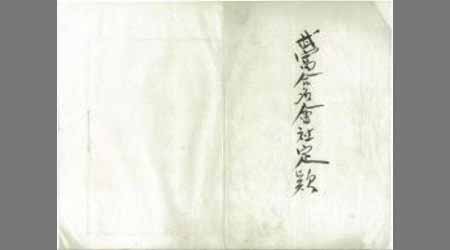 武富合名會社定款